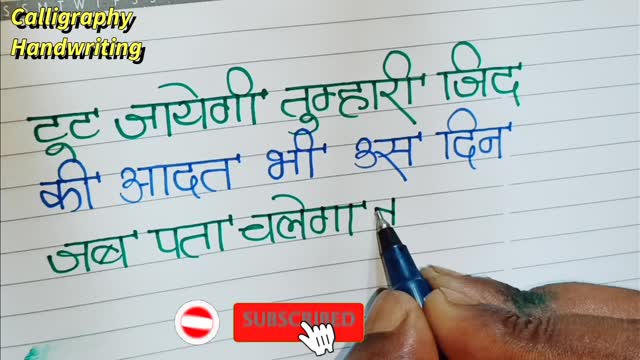 Calligraphy
Handwriting
टूट जायेगी तुम्हारी जिद
की आदत भी उस दिन
जब पता चलेगा
SUBSCRIBED